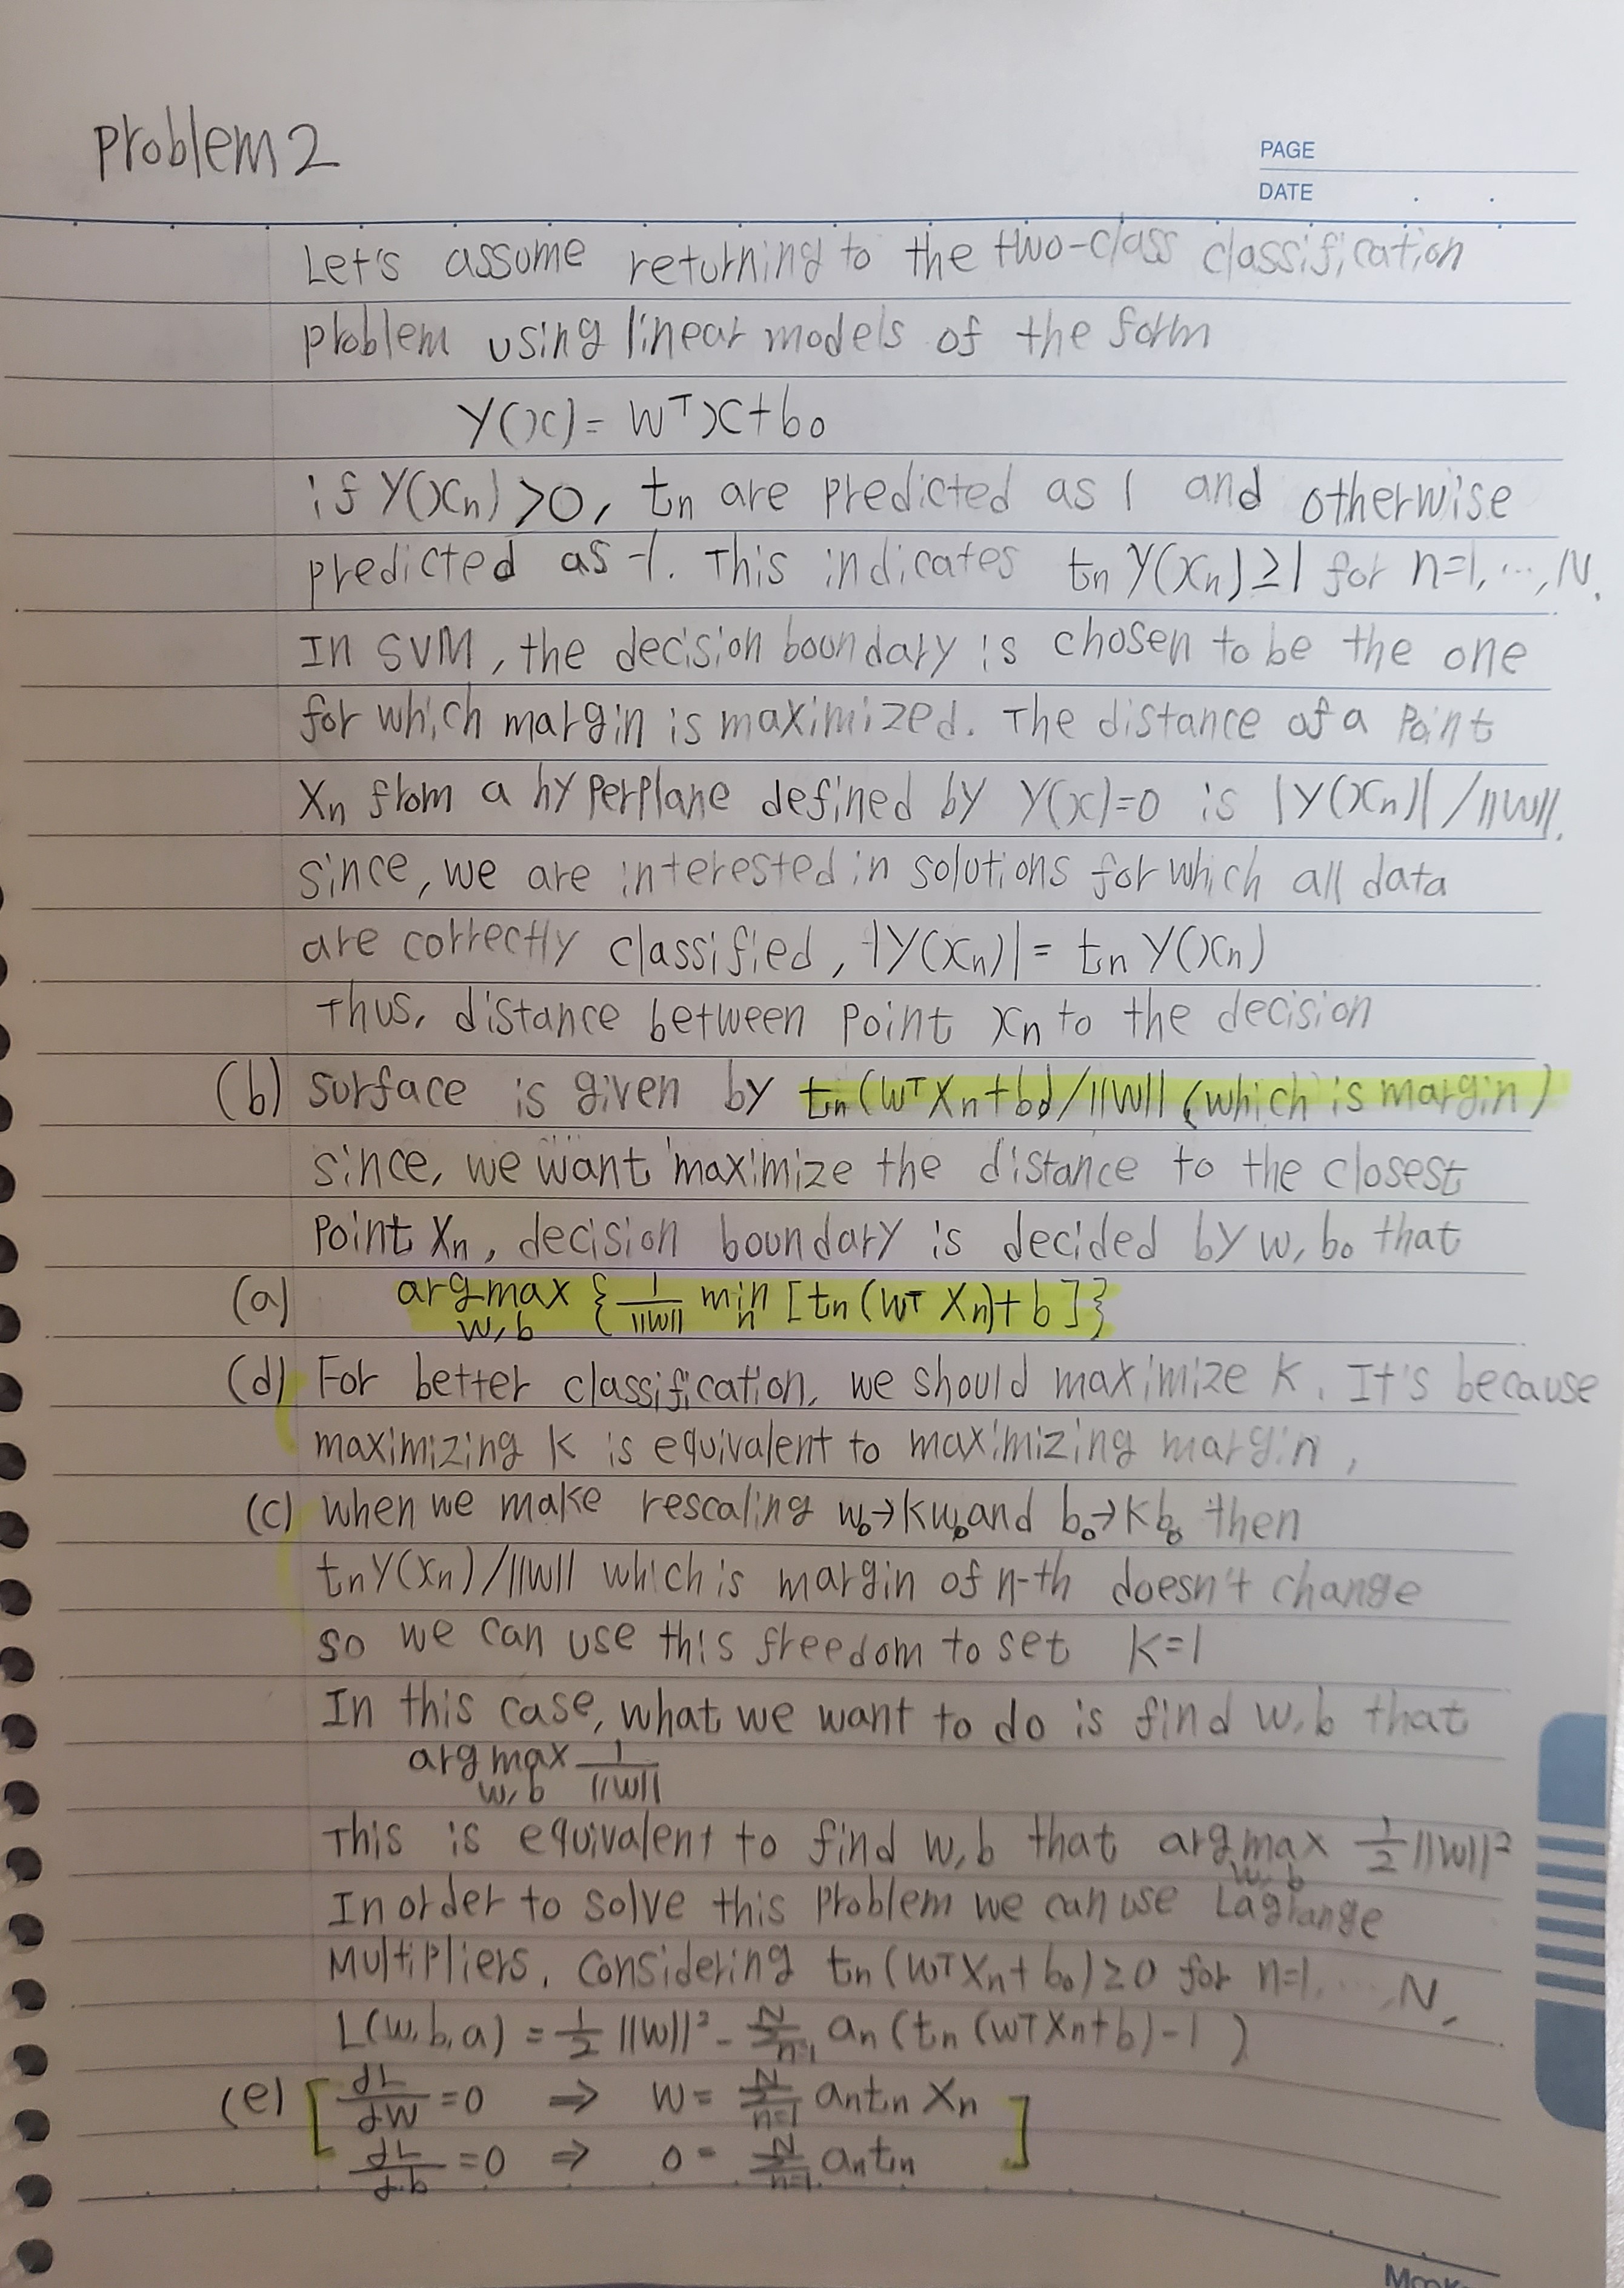 Problem 2
PAGE
DATE
Let's assume returning to the two-class classification
problem using linear models of the form
Y(x) = wᵀx+b₀
if Y(xₙ)>0, tₙ are predicted as 1 and otherwise
predicted as -1. This indicates tₙY(xₙ)≥1 for n=1,⋯,N.
In SVM, the decision boundary is chosen to be the one
for which margin is maximized. The distance of a point
Xₙ from a hyperplane defined by Y(x)=0 is |Y(xₙ)|/||w||.
since, we are interested in solutions for which all data
are correctly classified, |Y(xₙ)| = tₙY(xₙ)
Thus, distance between point xₙ to the decision
(b) surface is given by tₙ(wᵀXₙ+b₀)/||w|| (which is margin)
since, we want maximize the distance to the closest
Point Xₙ, decision boundary is decided by w, b₀ that
(a) arg max w,b { 1/||w|| min n [tₙ(wᵀXₙ)+b] }
(d) For better classification, we should maximize K. It's because
maximizing K is equivalent to maximizing margin,
(c) when we make rescaling w₀→Kw₀ and b₀→Kb₀ then
tₙY(xₙ)/||w|| which is margin of n-th doesn't change
so we can use this freedom to set K=1
In this case, what we want to do is find w,b that
arg max w,b 1/||w||
This is equivalent to find w,b that arg max w,b 1/2 ||w||²
In order to solve this problem we can use Lagrange
Multipliers. Considering tₙ(wᵀXₙ+b₀)≥0 for n=1,⋯,N,
L(w,b,a) = 1/2 ||w||² - Σₙ₌₁ᴺ aₙ(tₙ(wᵀXₙ+b)-1)
(e) [ ∂L/∂w =0 ⇒ w= Σₙ₌₁ᴺ aₙtₙXₙ ]
∂L/∂b =0 ⇒ 0= Σₙ₌₁ᴺ aₙtₙ